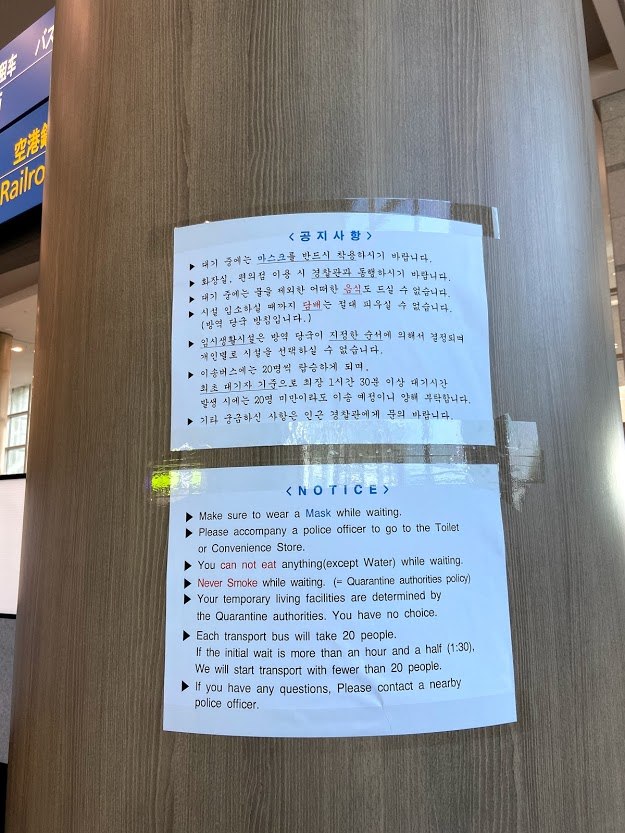 バス
空港鉄
Railro
<공지사항>
▶ 대기 중에는 마스크를 반드시 착용하시기 바랍니다.
▶ 화장실, 편의점 이용 시 경찰관과 동행하시기 바랍니다.
▶ 대기 중에는 물을 제외한 어떠한 음식도 드실 수 없습니다.
▶ 시설 입소하실 때까지 담배는 절대 피우실 수 없습니다.
(방역 당국 방침입니다.)
▶ 임시생활시설은 방역 당국이 지정한 순서에 의해서 결정되며
개인별로 시설을 선택하실 수 없습니다.
▶ 이송버스에는 20명씩 탑승하게 되며,
최초 대기자 기준으로 최장 1시간 30분 이상 대기시간
발생 시에는 20명 미만이라도 이송 예정이니 양해 부탁합니다.
▶ 기타 궁금하신 사항은 인근 경찰관에게 문의 바랍니다.
<NOTICE>
▶ Make sure to wear a Mask while waiting.
▶ Please accompany a police officer to go to the Toilet
or Convenience Store.
▶ You can not eat anything(except Water) while waiting.
▶ Never Smoke while waiting. (= Quarantine authorities policy)
▶ Your temporary living facilities are determined by
the Quarantine authorities. You have no choice.
▶ Each transport bus will take 20 people.
If the initial wait is more than an hour and a half (1:30),
We will start transport with fewer than 20 people.
▶ If you have any questions, Please contact a nearby
police officer.